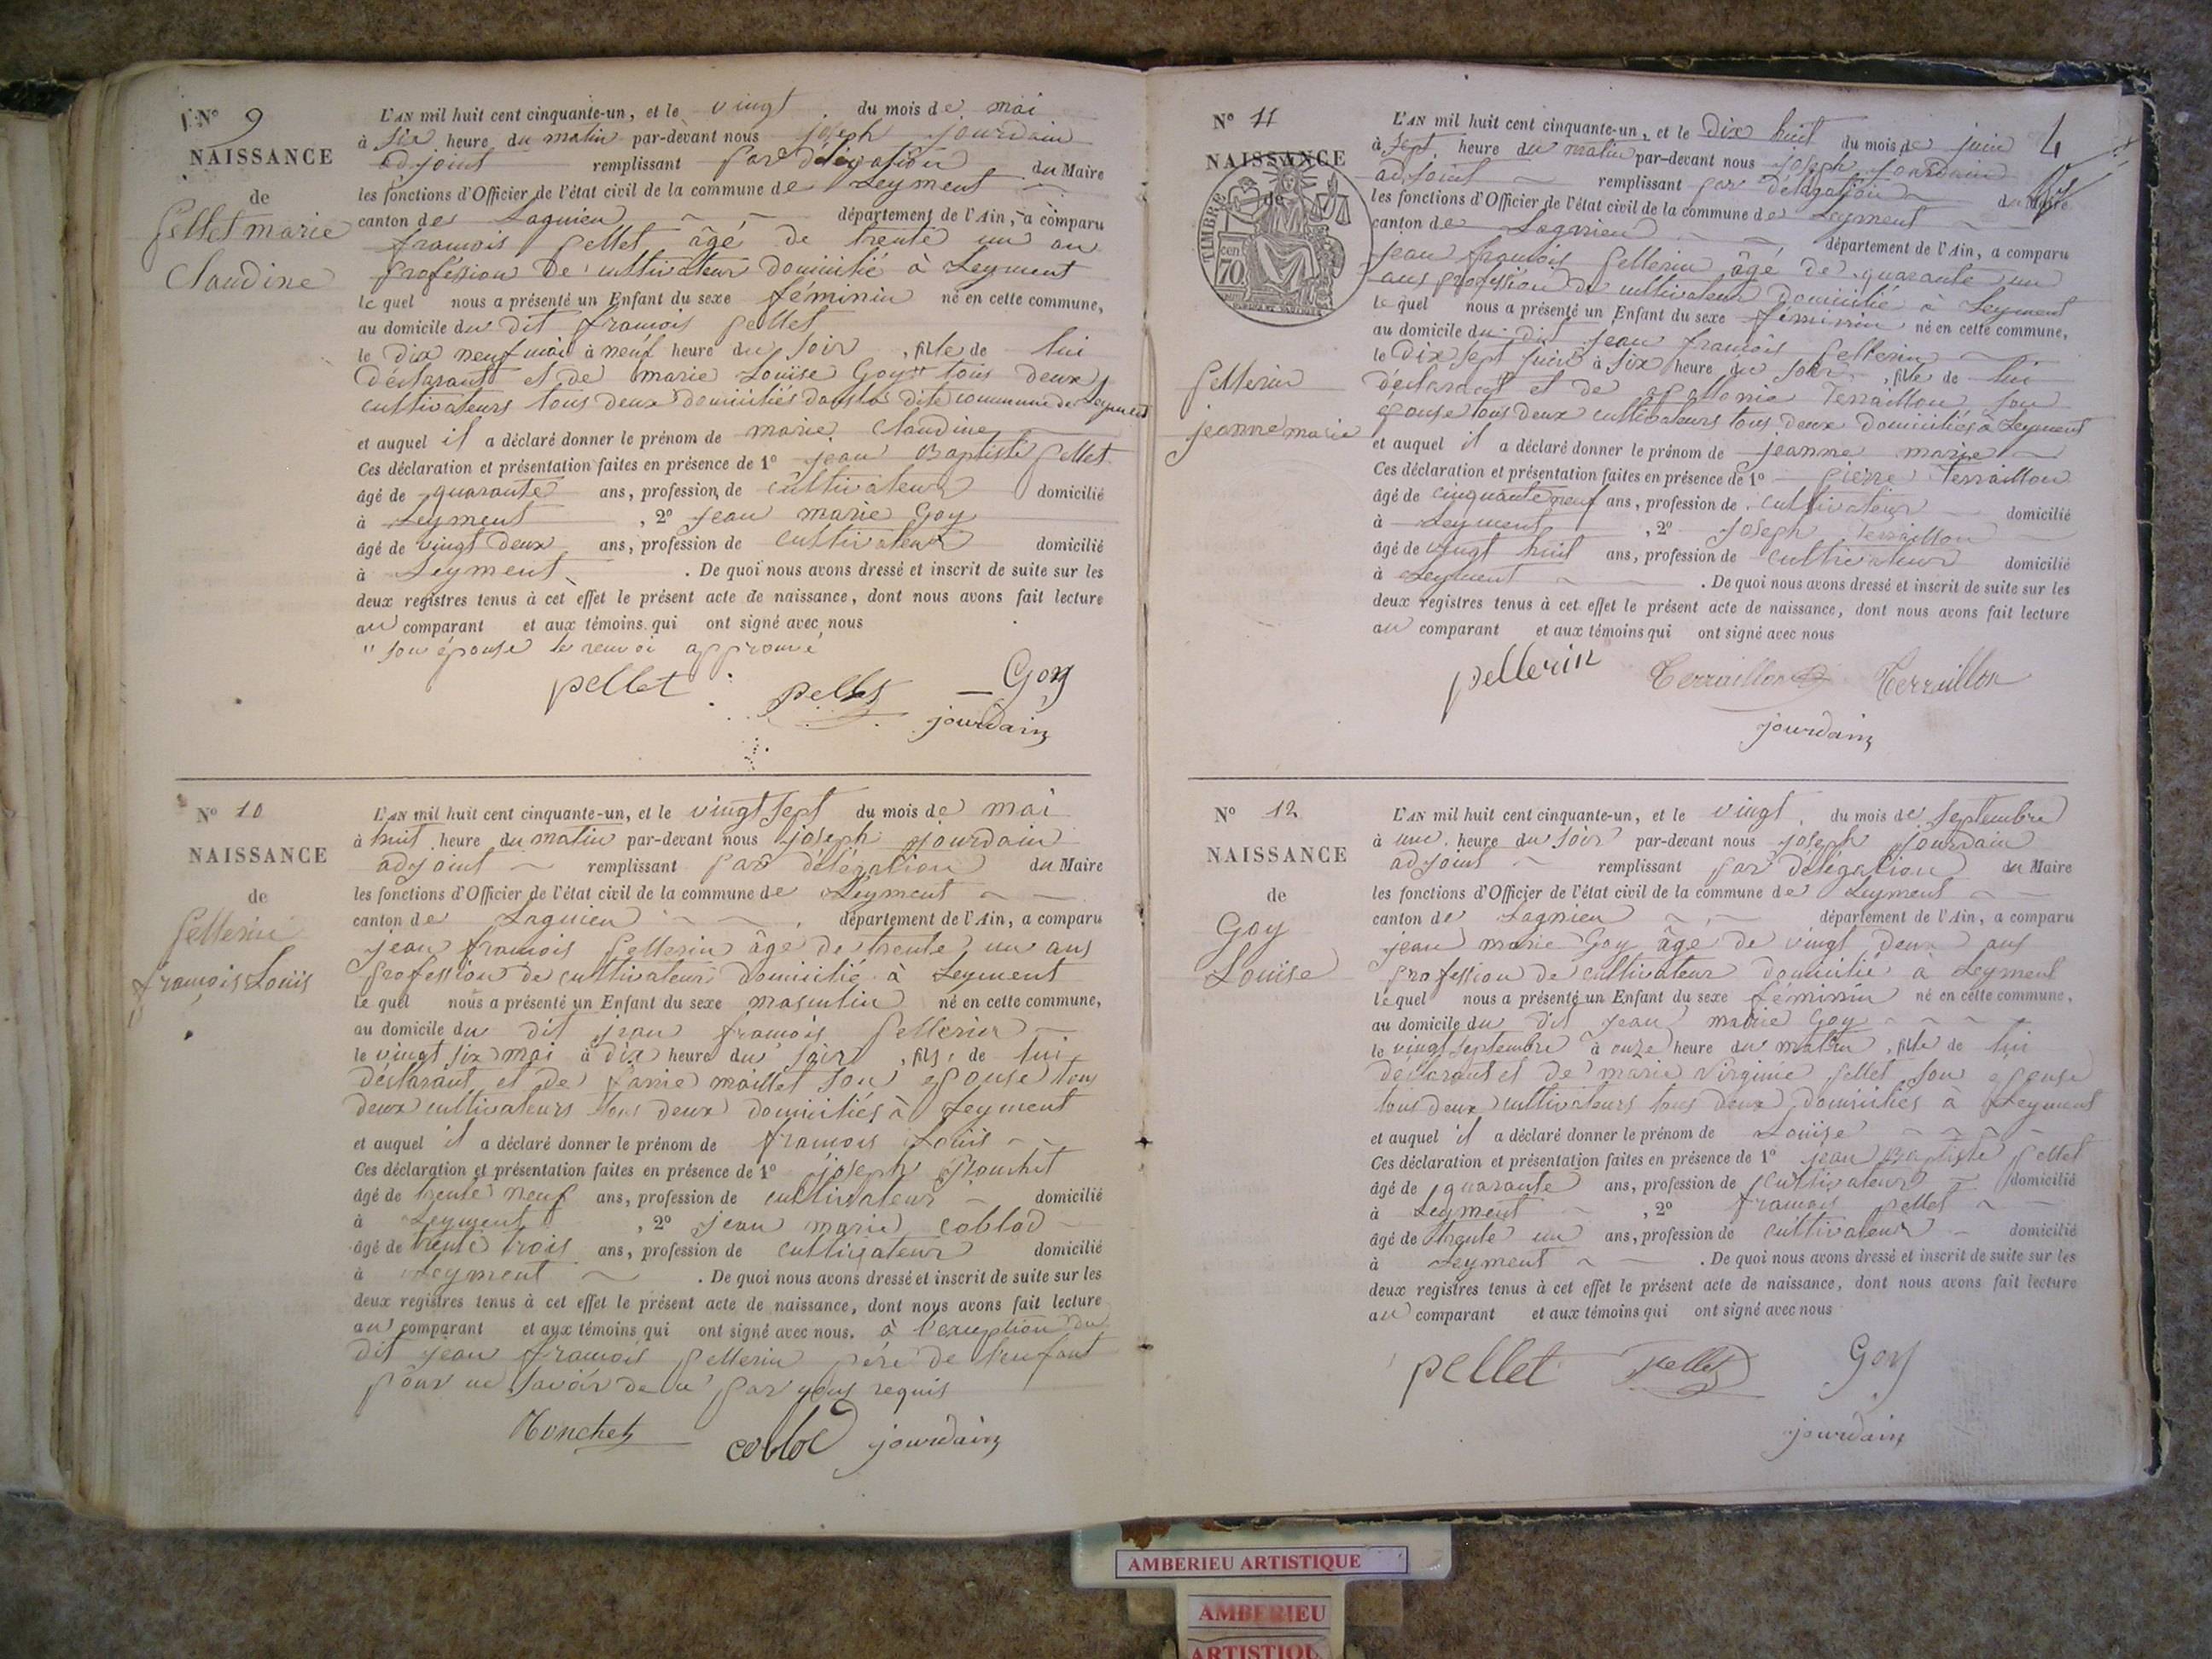 N° 9
NAISSANCE
de
pellet marie
Claudine
L'AN mil huit cent cinquante-un, et le vingt du mois de mai
à six heure du matin par-devant nous joseph jourdain
adjoint remplissant par délégation du Maire
les fonctions d'Officier de l'état civil de la commune de Leyment
canton de Lagnieu département de l'Ain, a comparu
françois pellet âgé de trente un an
profession de cultivateur domicilié à Leyment
le quel nous a présenté un Enfant du sexe féminin né en cette commune,
au domicile du dit françois pellet
le dix neuf mai à neuf heure du soir, fille de lui
déclarant et de marie Louise Goy " tous deux
cultivateurs tous deux domiciliés dans la dite commune de Leyment
et auquel il a déclaré donner le prénom de marie Claudine
Ces déclaration et présentation faites en présence de 1° jean Baptiste pellet
âgé de quarante ans, profession de cultivateur domicilié
à Leyment, 2° jean marie Goy
âgé de vingt deux ans, profession de cultivateur domicilié
à Leyment. De quoi nous avons dressé et inscrit de suite sur les
deux registres tenus à cet effet le présent acte de naissance, dont nous avons fait lecture
au comparant et aux témoins qui ont signé avec nous
" son épouse le renvoi approuvé
pellet pellet Goy
jourdain
N° 10
NAISSANCE
de
pellerin
françois Louis
L'AN mil huit cent cinquante-un, et le vingt sept du mois de mai
à huit heure du matin par-devant nous joseph jourdain
adjoint remplissant par délégation du Maire
les fonctions d'Officier de l'état civil de la commune de Leyment
canton de Lagnieu département de l'Ain, a comparu
jean françois pellerin âgé de trente un ans
profession de cultivateur domicilié à Leyment
le quel nous a présenté un Enfant du sexe masculin né en cette commune,
au domicile du dit jean françois pellerin
le vingt six mai à dix heure du soir, fils de lui
déclarant et de maillet son epouse tous
deux cultivateurs tous deux domiciliés à Leyment
et auquel il a déclaré donner le prénom de françois Louis
Ces déclaration et présentation faites en présence de 1° joseph
âgé de trente neuf ans, profession de cultivateur domicilié
à Leyment, 2° jean marie coblod
âgé de trente trois ans, profession de cultivateur domicilié
à Leyment. De quoi nous avons dressé et inscrit de suite sur les
deux registres tenus à cet effet le présent acte de naissance, dont nous avons fait lecture
au comparant et aux témoins qui ont signé avec nous. à l'exception du
dit jean françois pellerin père de l'enfant
pour ne savoir de ce par nous requis
coblod jourdain
N° 11
4
NAISSANCE
de
TIMBRE
70 cen
pellerin
jeanne marie
L'AN mil huit cent cinquante-un, et le dix huit du mois de juin
à sept heure du matin par-devant nous joseph jourdain
adjoint remplissant par délégation du Maire
les fonctions d'Officier de l'état civil de la commune de Leyment
canton de Lagnieu département de l'Ain, a comparu
jean françois pellerin âgé de quarante un
ans profession de cultivateur domicilié à Leyment
le quel nous a présenté un Enfant du sexe féminin né en cette commune,
au domicile du dit jean françois pellerin
le dix sept juin à six heure du soir, fille de lui
déclarant et de apollonie Terraillon son
épouse tous deux cultivateurs tous deux domiciliés à Leyment
et auquel il a déclaré donner le prénom de jeanne marie
Ces déclaration et présentation faites en présence de 1° pierre Terraillon
âgé de cinquante neuf ans, profession de cultivateur domicilié
à Leyment, 2° joseph Terraillon
âgé de vingt huit ans, profession de cultivateur domicilié
à Leyment. De quoi nous avons dressé et inscrit de suite sur les
deux registres tenus à cet effet le présent acte de naissance, dont nous avons fait lecture
au comparant et aux témoins qui ont signé avec nous
pellerin Terraillon Terraillon
jourdain
N° 12
NAISSANCE
de
Goy
Louise
L'AN mil huit cent cinquante-un, et le vingt du mois de septembre
à une heure du soir par-devant nous joseph jourdain
adjoint remplissant par délégation du Maire
les fonctions d'Officier de l'état civil de la commune de Leyment
canton de Lagnieu département de l'Ain, a comparu
jean marie Goy âgé de vingt deux ans
profession de cultivateur domicilié à Leyment
le quel nous a présenté un Enfant du sexe féminin né en cette commune,
au domicile du dit jean marie Goy
le vingt septembre à onze heure du matin, fille de lui
déclarant et de marie virginie pellet son epouse
tous deux cultivateurs tous deux domiciliés à Leyment
et auquel il a déclaré donner le prénom de Louise
Ces déclaration et présentation faites en présence de 1° jean Baptiste pellet
âgé de quarante ans, profession de cultivateur domicilié
à Leyment, 2° françois pellet
âgé de trente un ans, profession de cultivateur domicilié
à Leyment. De quoi nous avons dressé et inscrit de suite sur les
deux registres tenus à cet effet le présent acte de naissance, dont nous avons fait lecture
au comparant et aux témoins qui ont signé avec nous
pellet pellet Goy
jourdain
AMBERIEU ARTISTIQUE
AMBERIEU
ARTISTIQU